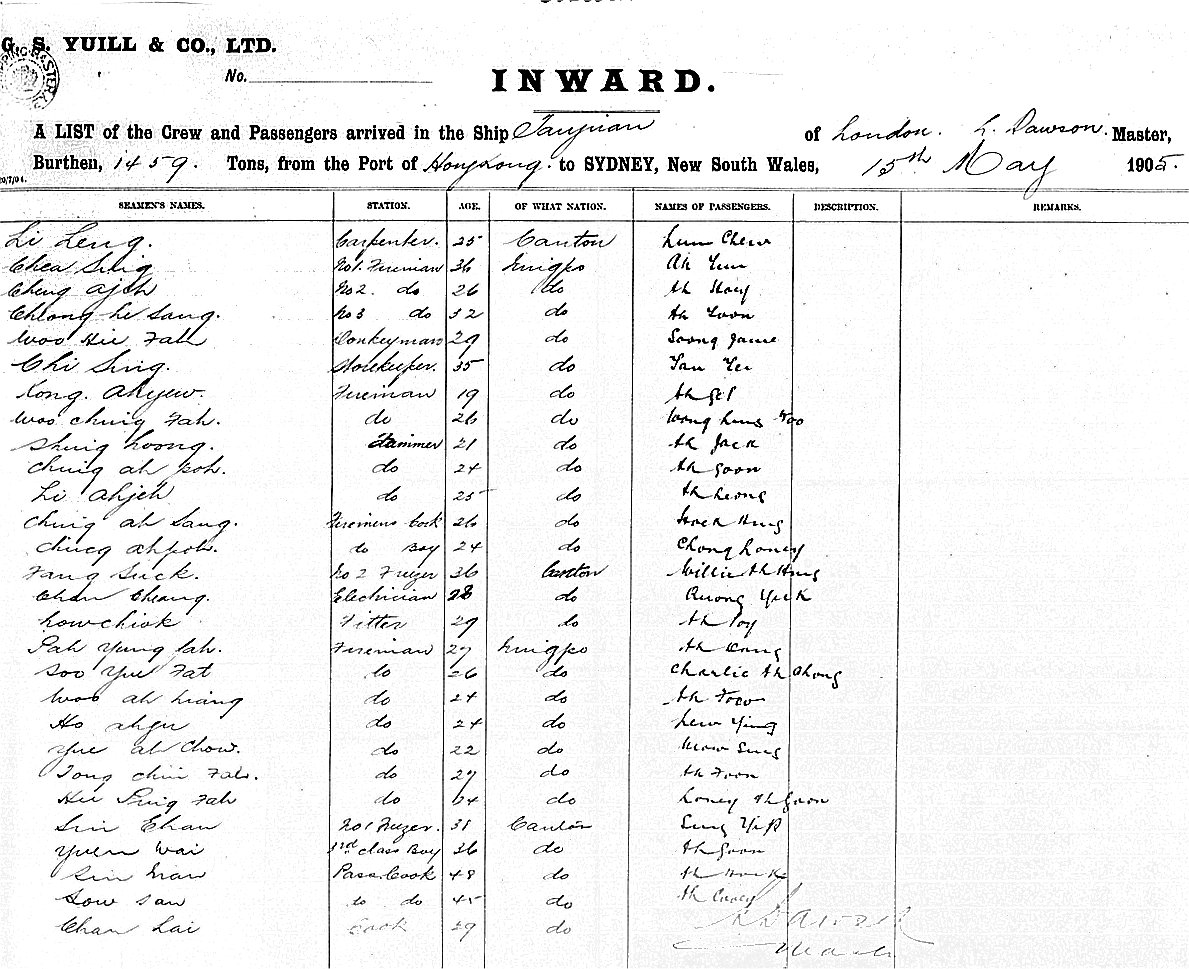 G. S. YUILL & CO., LTD.
No.
INWARD.
A LIST of the Crew and Passengers arrived in the Ship Taiyuan of London. L. Dawson. Master,
Burthen, 1459. Tons, from the Port of Hong Kong. to SYDNEY, New South Wales, 15th May 1905.
SEAMEN'S NAMES. STATION. AGE. OF WHAT NATION. NAMES OF PASSENGERS. DESCRIPTION. REMARKS.
Li Leng. Carpenter. 25 Canton Lum Chew
Chea Sing No 1. Fireman 36 Ningpo Ah Yum
Cheng Ajoh No 2. do 26 do Ah
Chong He Sang. No 3 do 32 do Ah Loon
Woo Hie Fah Donkeyman 29 do
Chi Sing. Storekeeper. 35 do Yan Yee
Kong. Ahyew. Fireman 19 do Ah
Woo Ching Fah. do 26 do Wong Lung Foo
Shing Loong. Trimmer 21 do Ah Jack
Ching ah poh. do 24 do Ah Goon
Li Ahjeh do 25 do Ah Leong
Ching ah Sang. Firemens Cook 26 do Hock Hung
ahpoh. do Boy 24 do Chong Loney
Fang Suck. No 2 36 Canton Willie Ah Hing
Chan Cheong. Electrician 28 do Quong Yuck
Lowchiok Fitter 29 do Ah Toy
Pah Yung fah. Fireman 27 Ningpo Ah Kong
Soo Yue Fat do 26 do Charlie Ah Chong
Woo ah Liang do 24 do Ah Foo
Ho ahgu do 24 do Lew Ying
Yue ah Chow. do 22 do Mow Sing
Tong chin Fah. do 27 do Ah Foon
Hie Sing Fah do 34 do Loney Ah Goon
Sin Chan No 1 Canton Sung
Yuen Wai 3rd class Boy 36 do Ah Goon
Sin Man Pass. Cook 48 do Ah
Sow San do do 45 do Ah
Chan Lai Cook 29 do
L Dawson
Master